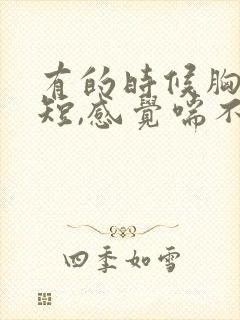 有的時候胸
短,感覺喘不
四季如雪